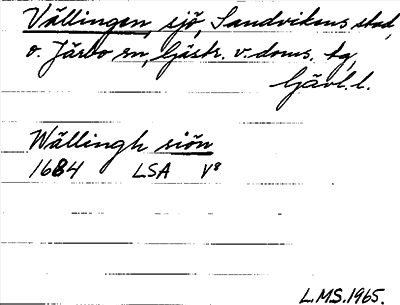 Vällingen, sjö, Sandvikens stad,
o. Järbo sn, Gästr. v. doms. tg,
Gävl. l.
Wällingh siön
1684 LSA V8
L.M.S. 1965.